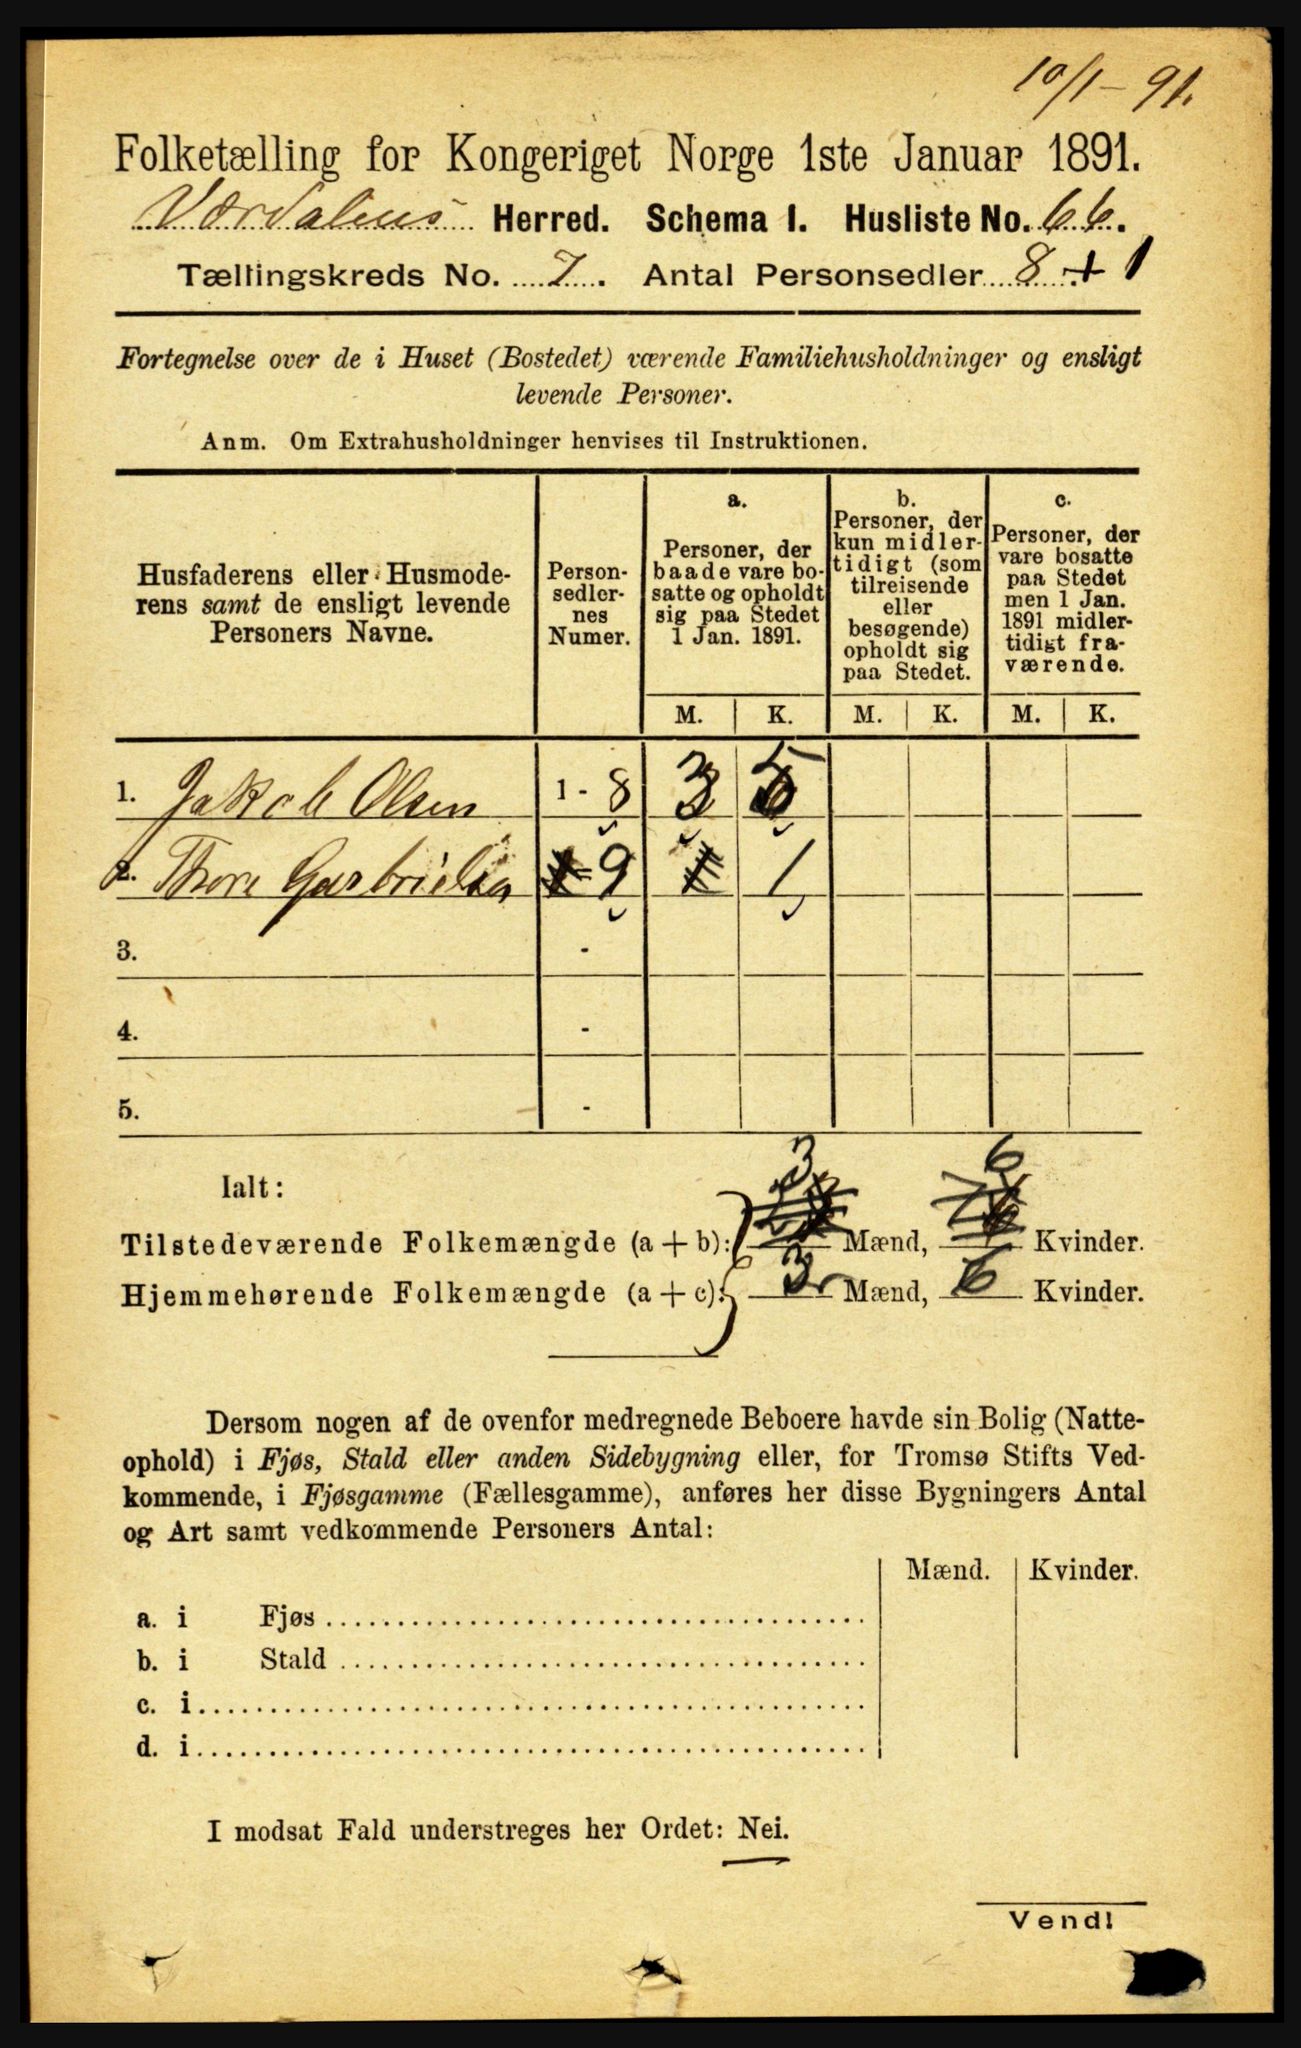 10/1 - 91.
Folketælling for Kongeriget Norge 1ste Januar 1891.
Værdalens Herred. Schema I. Husliste No. 66.
Tællingskreds No. 7. Antal Personsedler 8 + 1
Fortegnelse over de i Huset (Bostedet) værende Familiehusholdninger og ensligt
levende Personer.
Anm. Om Extrahusholdninger henvises til Instruktionen.
Husfaderens eller Husmode-
rens samt de ensligt levende
Personers Navne.
Person-
sedler-
nes
Numer.
a.
Personer, der
baade vare bo-
satte og opholdt
sig paa Stedet
1 Jan. 1891.
b.
Personer, der
kun midler-
tidigt (som
tilreisende
eller
besøgende)
opholdt sig
paa Stedet.
c.
Personer, der
vare bosatte
paa Stedet
men 1 Jan.
1891 midler-
tidigt fra-
værende.
M. K. M. K. M. K.
1. Jakob Olsen 1 - 8 3 5
2. 9 1
3. -
4. -
5. -
Ialt: 3 6
Tilstedeværende Folkemængde (a + b): Mænd, Kvinder.
Hjemmehørende Folkemængde (a + c): 3 Mænd, 6 Kvinder.
Dersom nogen af de ovenfor medregnede Beboere havde sin Bolig (Natte-
ophold) i Fjøs, Stald eller anden Sidebygning eller, for Tromsø Stifts Ved-
kommende, i Fjøsgamme (Fællesgamme), anføres her disse Bygningers Antal
og Art samt vedkommende Personers Antal:
Mænd. Kvinder.
a. i Fjøs
b. i Stald
c. i
d. i
I modsat Fald understreges her Ordet: Nei.
Vend!